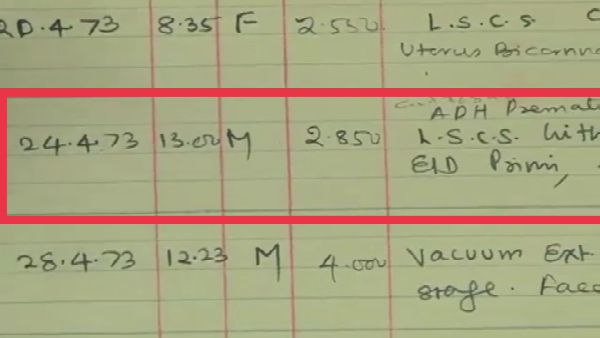 20.4.73 8.35 F 2.550 L.S.C.S. C
Uterus Bicornu
ADH Premat
24.4.73 13.00 M 2.850 L.S.C.S. With
EID Primi,
28.4.73 12.23 M 4.000 Vacuum Ext.
stage. Face